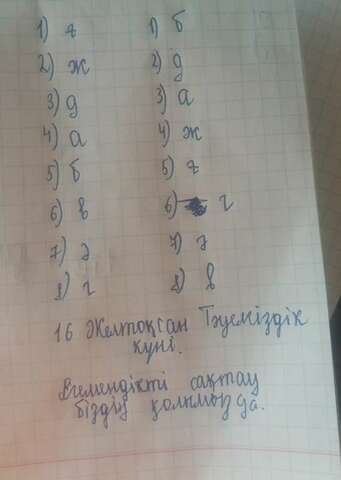 1) г 1) б
2) ж 2) д
3) д 3) а
4) а 4) ж
5) б 5) г
6) в 6) г
7) з 7) з
8) г 8) в
16 Желтоқсан Тәуелсіздік
күні.
Егемендікті сақтау
біздің қолымызда.